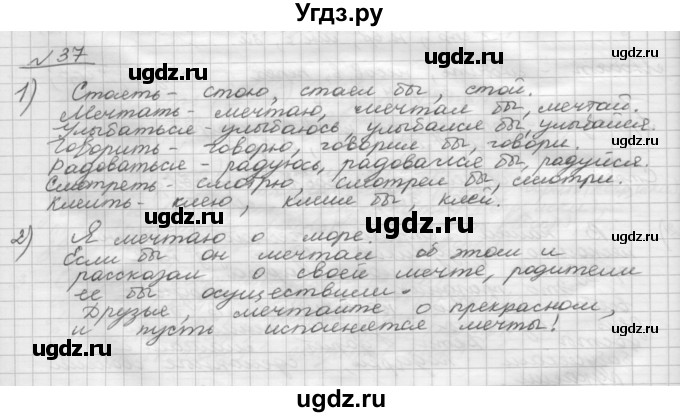 Угдз.ру
№ 37
1) Стоять - стою, стоял бы, стой.
Мечтать - мечтаю, мечтал бы, мечтай.
Улыбаться - улыбаюсь, улыбался бы, улыбайся.
Говорить - говорю, говорил бы, говори.
Радоваться - радуюсь, радовался бы, радуйся.
Смотреть - смотрю, смотрел бы, смотри.
Клеить - клею, клеил бы, клей.
2) Я мечтаю о море.
Если бы он мечтал об этом и
рассказал о своей мечте, родители
ее бы осуществили.
Друзья, мечтайте о прекрасном,
и пусть исполняется мечты!
ugdz.ru
ugdz.ru
ugdz.ru
ugdz.ru
ugdz.ru
ugdz.ru
ugdz.ru
ugdz.ru
ugdz.ru
ugdz.ru
ugdz.ru
ugdz.ru